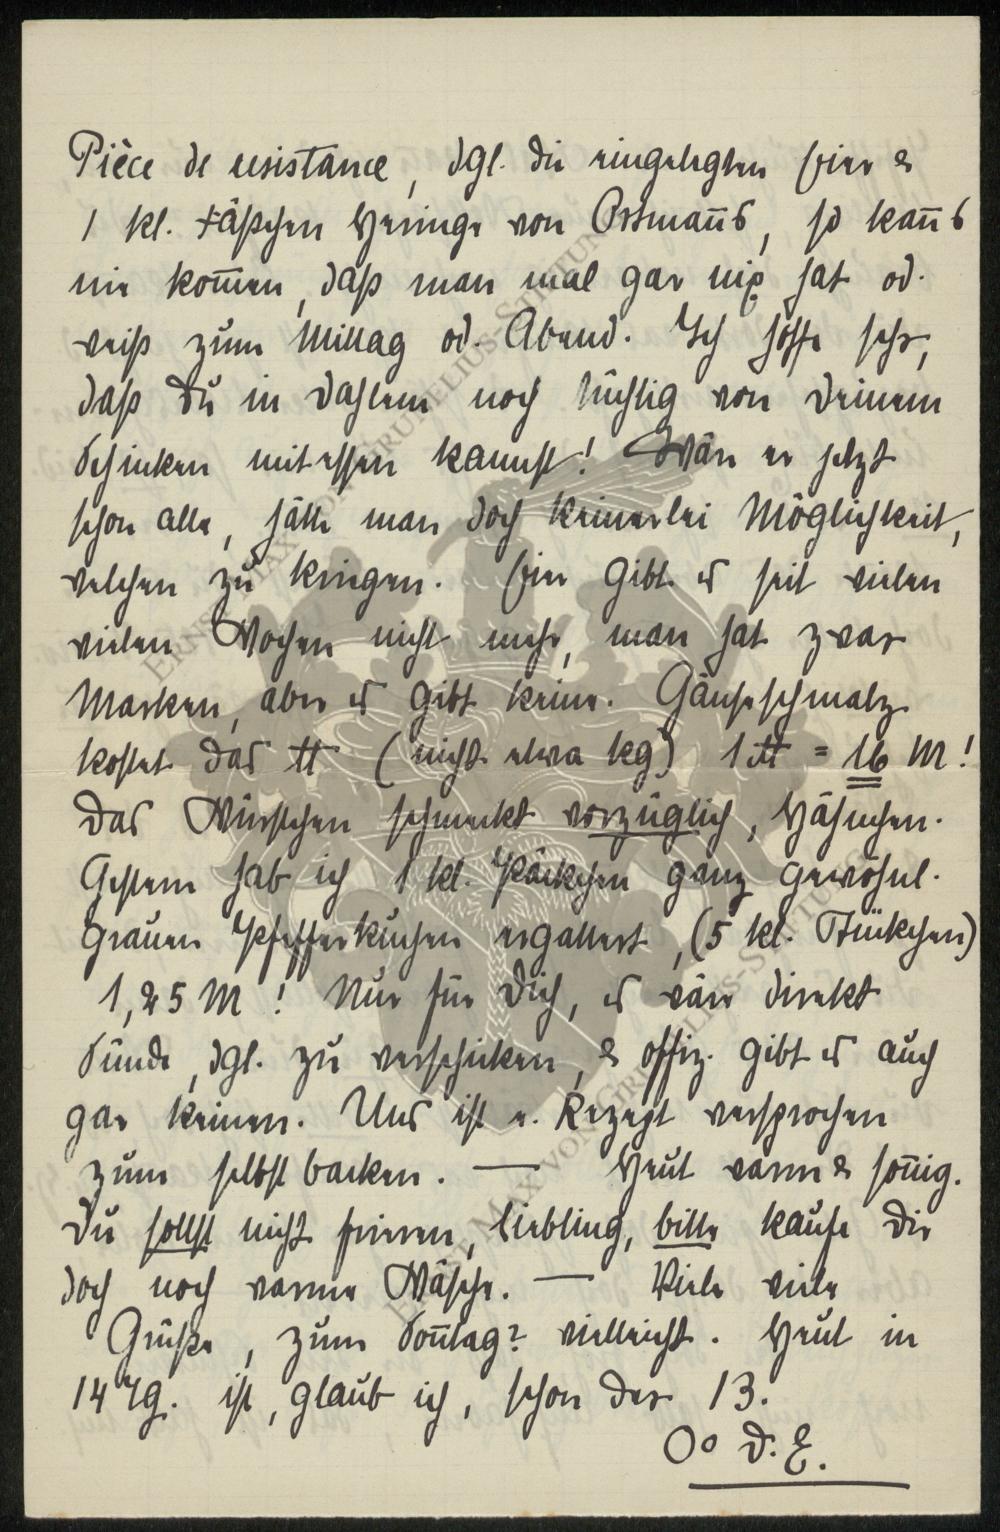 Pièce de resistance, dgl. die eingelegten Eier &
1 kl. Fäßchen Heringe von Ortmañs, so kañs
nie kom̄en, daß man mal gar nix hat od.
weiß zum Mittag od. Abend. Ich hoffe sehr,
daß Du in Dahlem noch tüchtig von Deinem
Schinken mitessen kannst! Wär er jetzt
schon alle, hätte man doch keinerlei Möglichkeit,
welchen zu kriegen. Eier gibt es seit vielen
vielen Wochen nicht mehr, man hat zwar
Marken, aber es gibt keine. Gänseschmalz
kostet das ℔ (nicht etwa kg) 1 ℔ = 16 M!
Das Würstchen schmeckt vorzüglich, Hähnchen.
Gestern hab ich 1 kl. Päckchen ganz gewöhnl.
grauen Pfefferkuchen ergattert, (5 kl. Stückchen)
1,25 M! Nur für Dich, es wäre direkt
Sünde, dgl. zu verschicken, & offiz. gibt es auch
gar keinen. Uns ist e. Rezept versprochen
zum selbst backen. — Heut warm & soñig.
Du sollst nicht frieren, Liebling, bitte kaufe Dir
doch noch warme Wäsche. — Viele viele
Grüße, zum Soñtag? vielleicht. Heut in
14 Tg. ist, glaub ich, schon der 13.
Oo D. E.
ERNST-MAX-VON-GRUNELIUS-STIFTUNG
ERNST-MAX-VON-GRUNELIUS-STIFTUNG